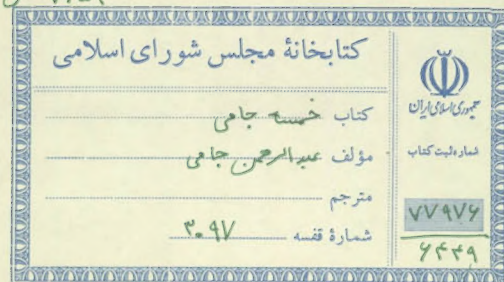 کتابخانهٔ مجلس شورای اسلامی
کتاب خمسه جامی
مؤلف عبدالرحمن جامی
مترجم
شمارهٔ قفسه ۳۰۹۷
جمهوری اسلامی ایران
شماره ثبت کتاب
۷۷۹۷۶
۶۴۴۹